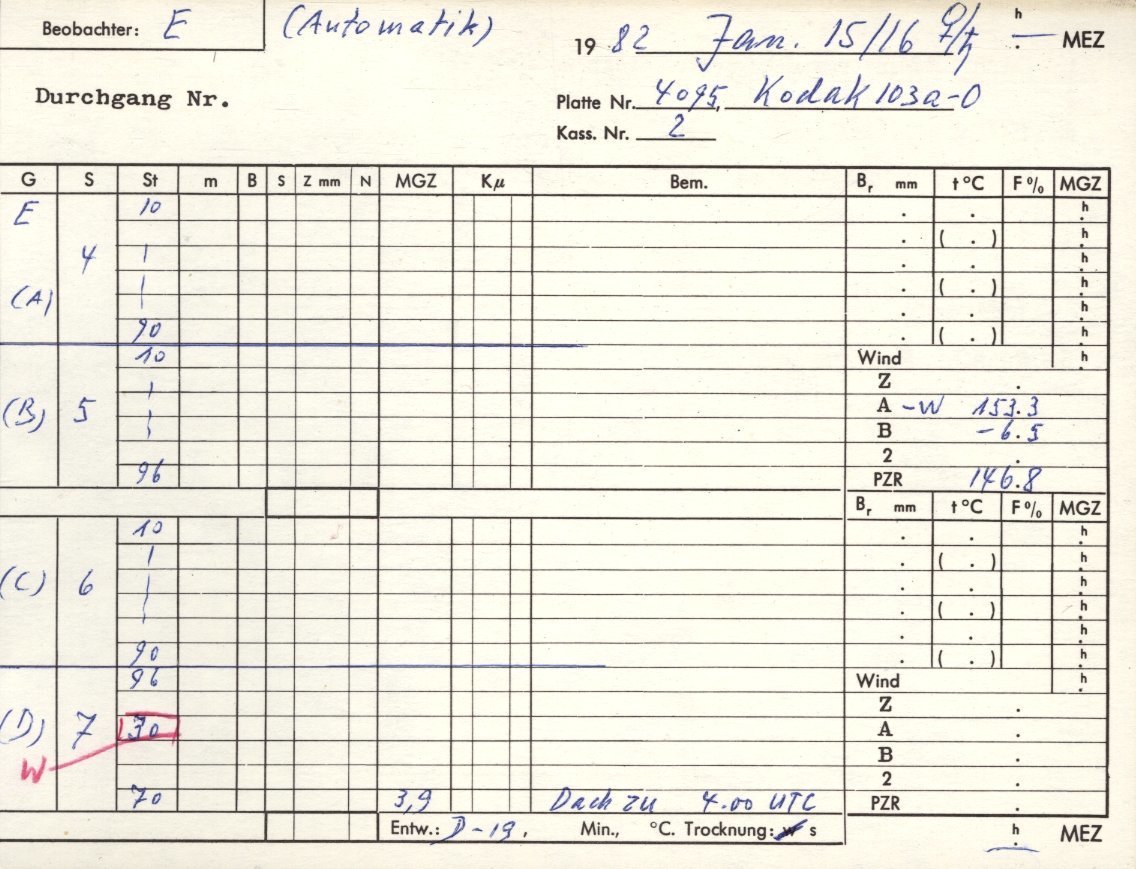 Beobachter: E (Automatik) 19 82 Jan. 15/16 ♀/♄ h . — MEZ
Durchgang Nr.
Platte Nr. 4095, Kodak 103a-O
Kass. Nr. 2
G S St m B S Z mm N MGZ Kμ Bem. Br mm t °C F % MGZ
E 10 . . h.
. ( . ) h.
4 | . . h.
(A) | . ( . ) h.
. . h.
90 . ( . ) h.
10 Wind h.
| Z .
(B) 5 | A -W 153.3
| B -6.5
2 .
96 PZR 146.8
Br mm t °C F % MGZ
10 . . h.
| . ( . ) h.
(C) 6 | . . h.
| . ( . ) h.
. . h.
90 . ( . ) h.
96 Wind h.
Z .
(D) 7 30 A .
W B .
2 .
70 3,9 Dach zu 4.00 UTC PZR .
Entw.: D-19, Min., °C. Trocknung: w s h . MEZ